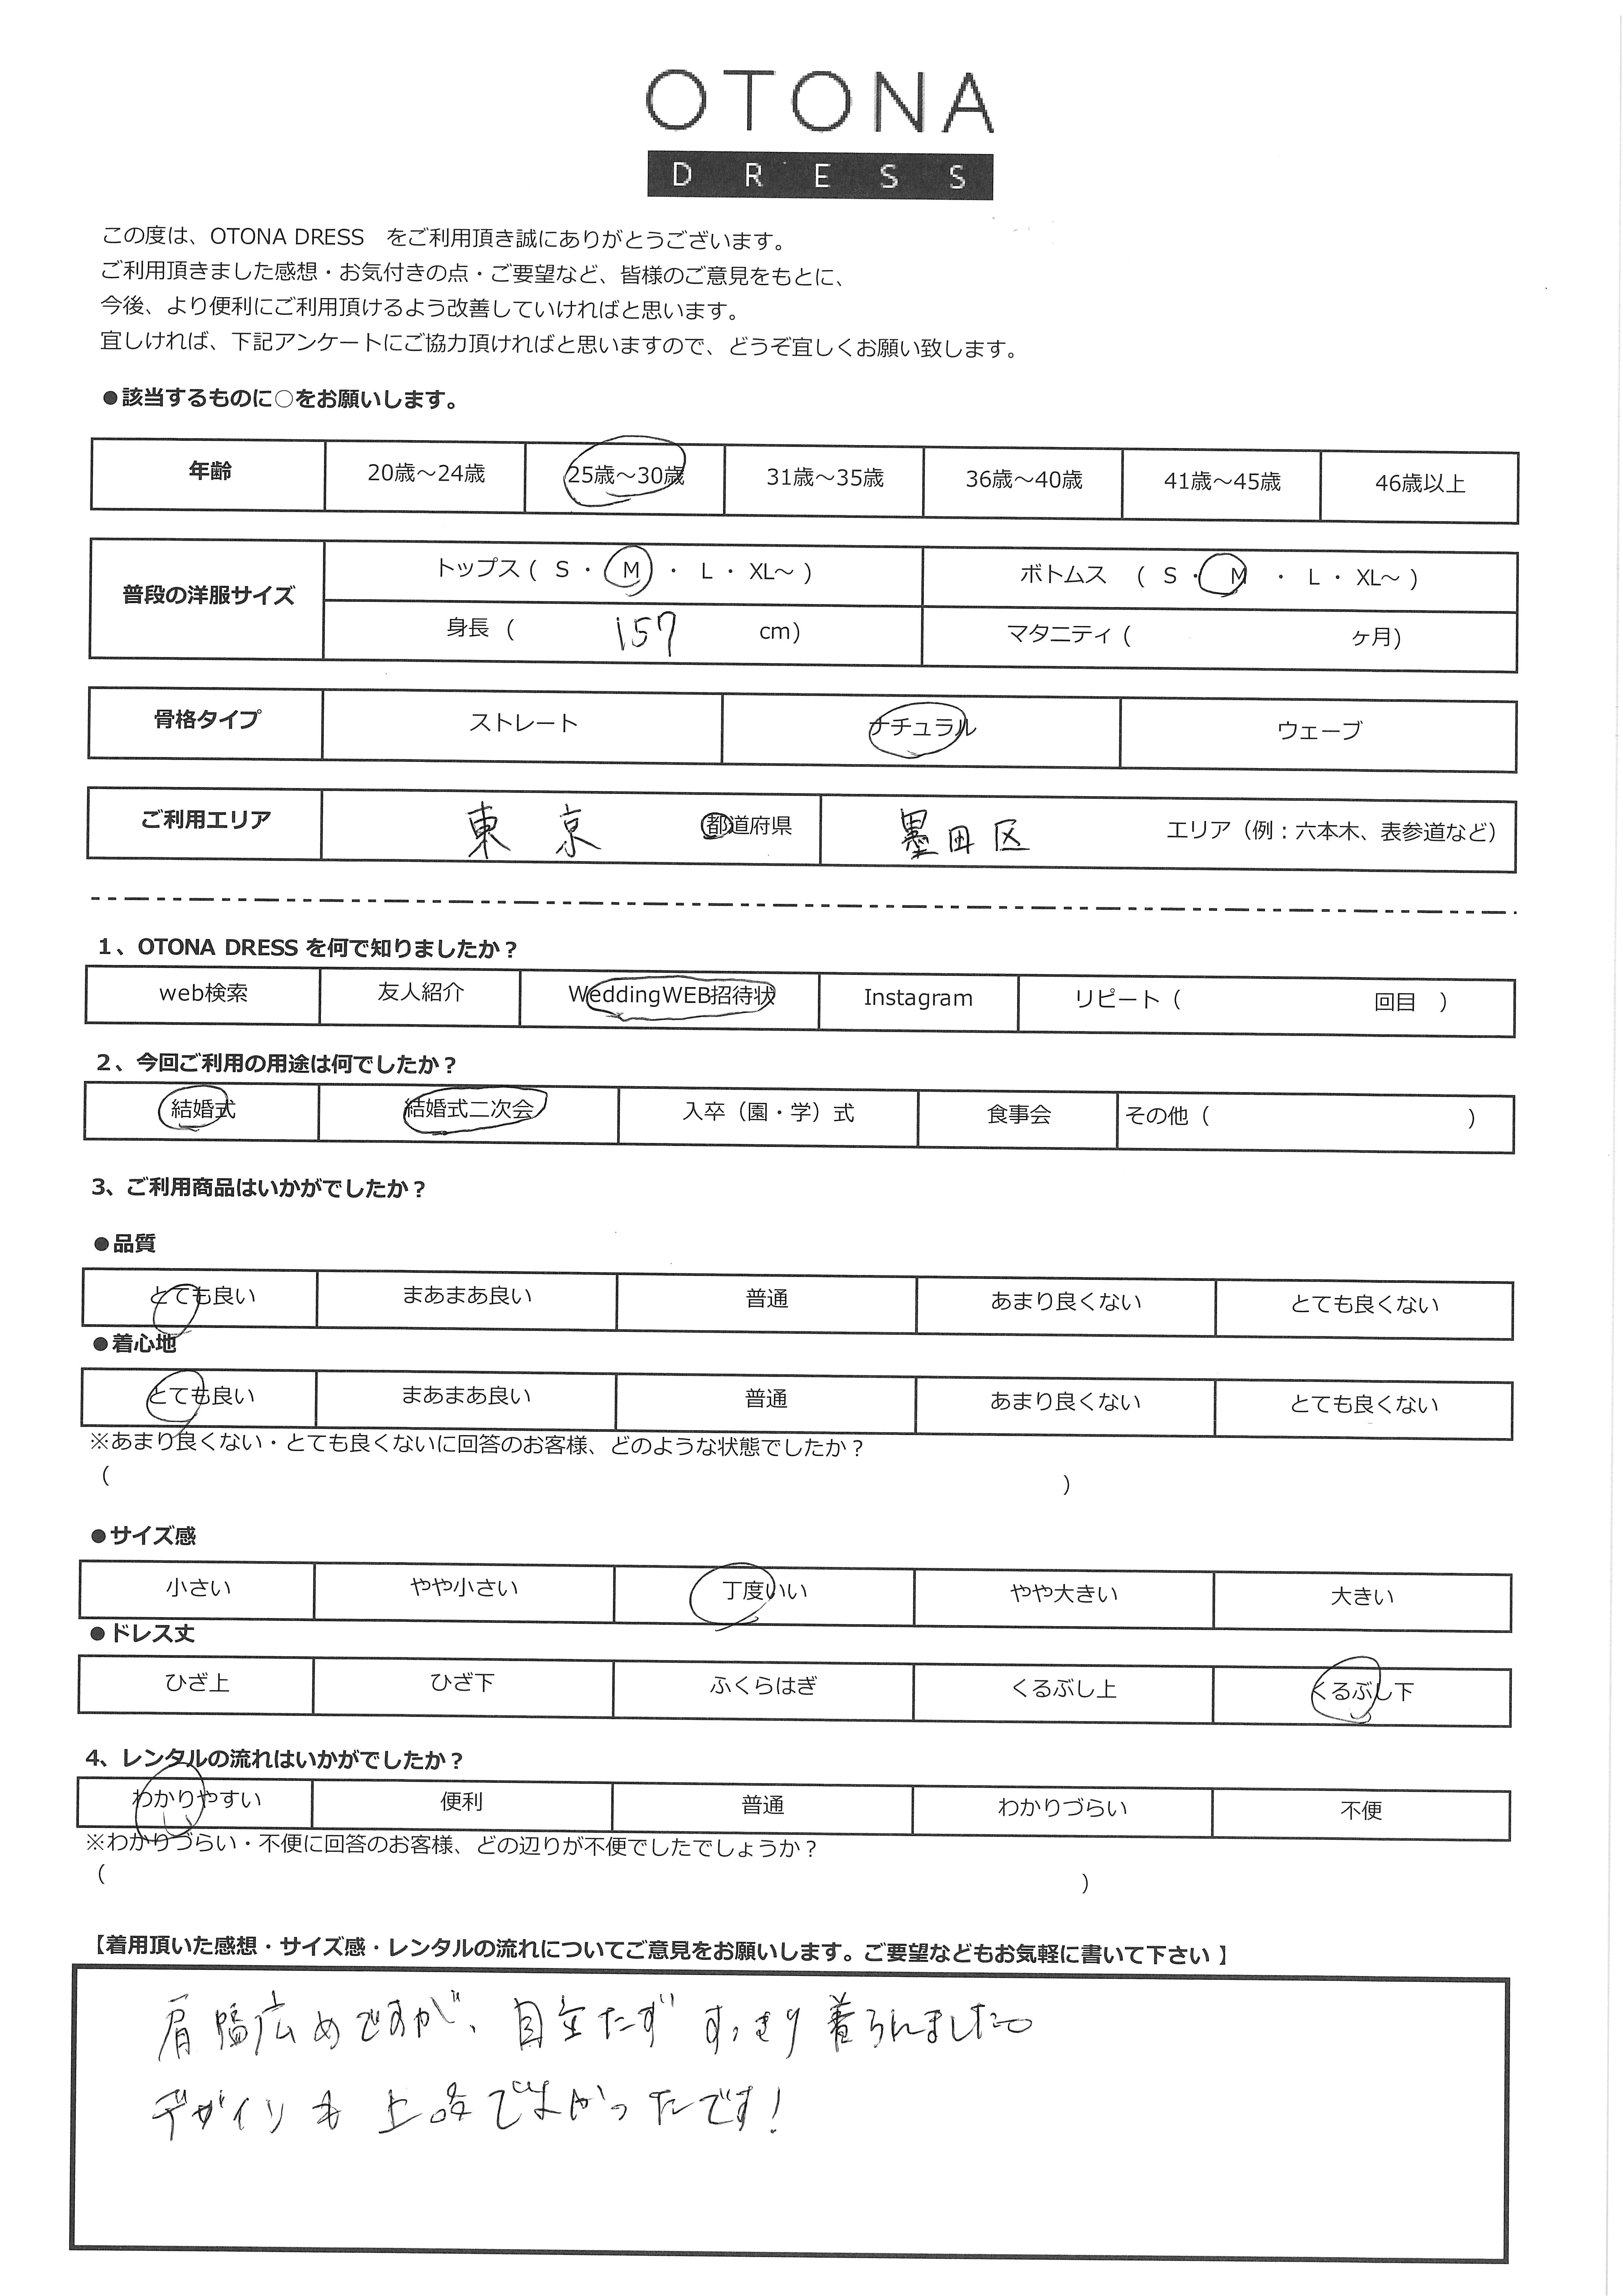 OTONA
DRESS
この度は、OTONA DRESS　をご利用頂き誠にありがとうございます。
ご利用頂きました感想・お気付きの点・ご要望など、皆様のご意見をもとに、
今後、より便利にご利用頂けるよう改善していければと思います。
宜しければ、下記アンケートにご協力頂ければと思いますので、どうぞ宜しくお願い致します。
●該当するものに○をお願いします。
年齢 20歳～24歳 25歳～30歳 31歳～35歳 36歳～40歳 41歳～45歳 46歳以上
普段の洋服サイズ トップス ( S ・ M ・ L ・ XL～ ) ボトムス ( S ・ M ・ L ・ XL～ )
身長 ( 157 cm) マタニティ ( ヶ月)
骨格タイプ ストレート ナチュラル ウェーブ
ご利用エリア 東京 都道府県 墨田区 エリア（例：六本木、表参道など）
1、OTONA DRESS を何で知りましたか？
web検索 友人紹介 WeddingWEB招待状 Instagram リピート（ 回目 ）
2、今回ご利用の用途は何でしたか？
結婚式 結婚式二次会 入卒（園・学）式 食事会 その他（ ）
3、ご利用商品はいかがでしたか？
●品質
とても良い まあまあ良い 普通 あまり良くない とても良くない
●着心地
とても良い まあまあ良い 普通 あまり良くない とても良くない
※あまり良くない・とても良くないに回答のお客様、どのような状態でしたか？
（ ）
●サイズ感
小さい やや小さい 丁度いい やや大きい 大きい
●ドレス丈
ひざ上 ひざ下 ふくらはぎ くるぶし上 くるぶし下
4、レンタルの流れはいかがでしたか？
わかりやすい 便利 普通 わかりづらい 不便
※わかりづらい・不便に回答のお客様、どの辺りが不便でしたでしょうか？
（ ）
【着用頂いた感想・サイズ感・レンタルの流れについてご意見をお願いします。ご要望などもお気軽に書いて下さい 】
肩幅広めですが、目立たず すっきり 着られました。
デザインも 上品でよかったです！